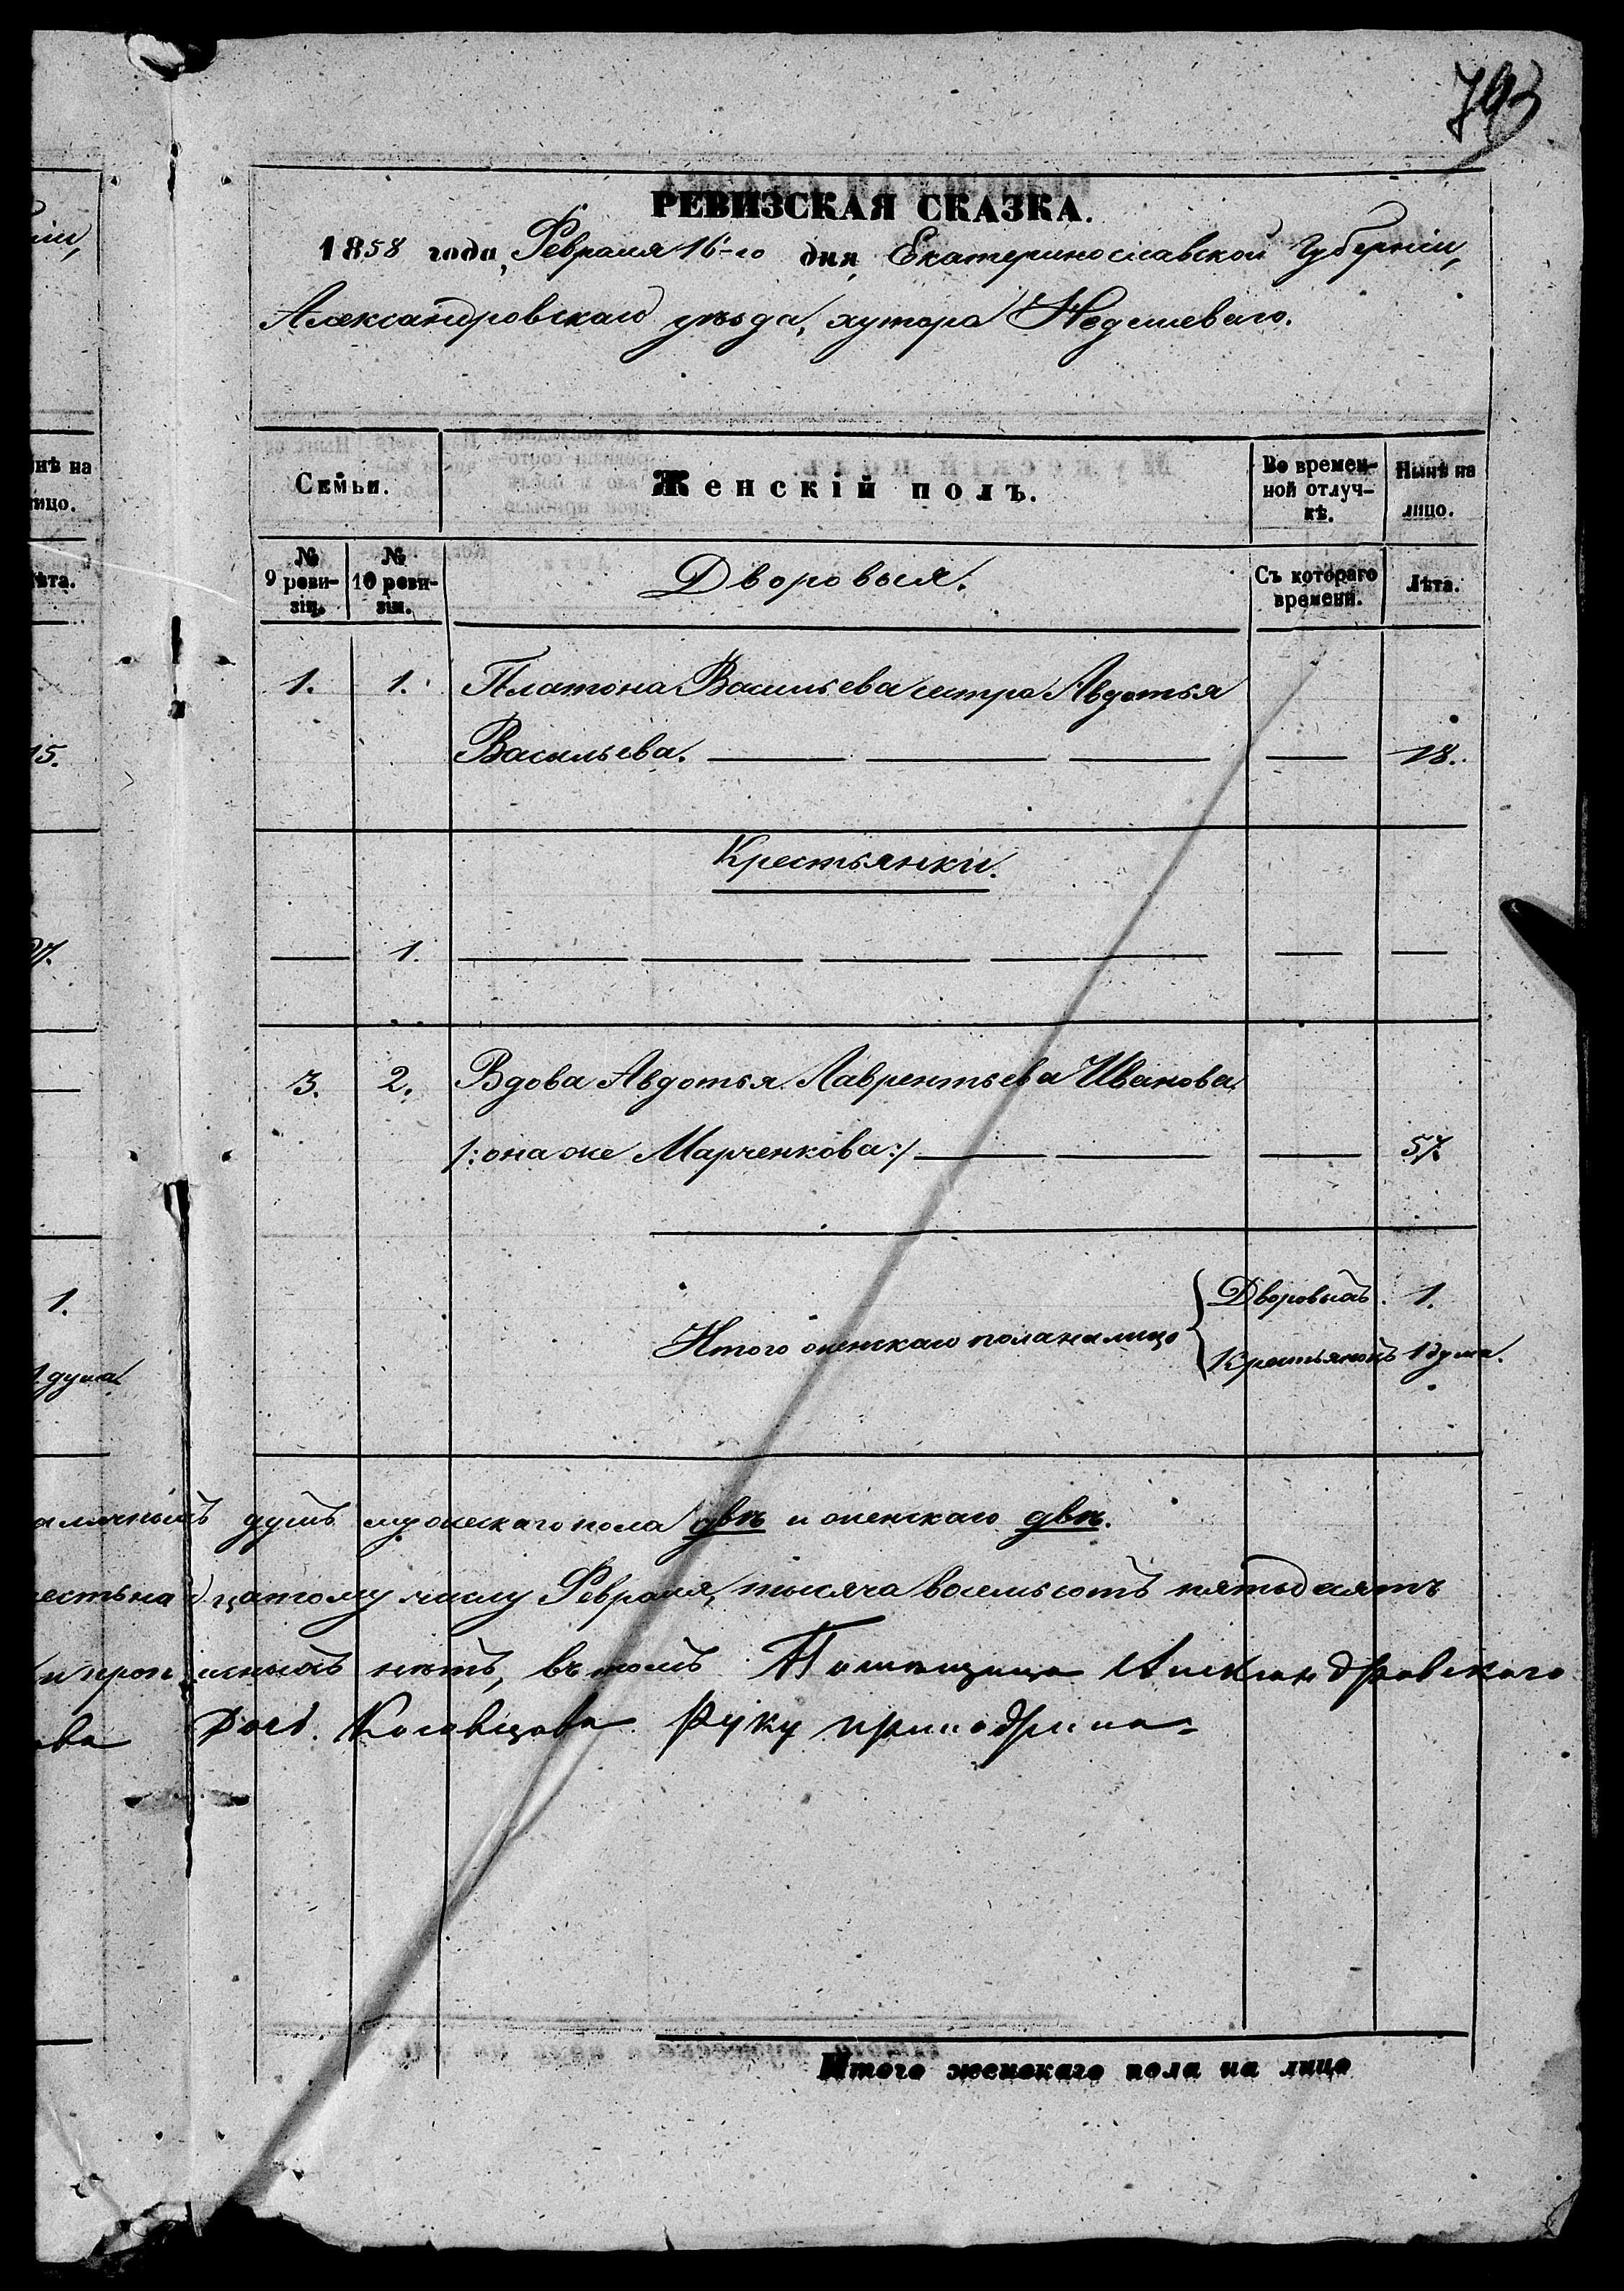 793
РЕВИЗСКАЯ СКАЗКА.
1858 года, Февраля 16-го дня, Екатеринославской Губерніи,
Александровскаго уѣзда, хутора
нѣ на
лицо.
Семьи.
Женскій полъ.
Во времен-
ной отлуч-
кѣ.
Нынѣ на
лицо.
лѣта.
№
9 реви-
зіи.
№
10 реви-
зіи.
Дворовыя.
Съ котораго
времени.
Лѣта.
15.
1. 1. Платона Васильева сестра Авдотья
Васильева. — — — — 18.
Крестьянки.
— 1. — — — — — —
3. 2. Вдова Авдотья Лаврентьева Иванова
/:она же Марченкова:/ — — — 57.
1.
Итого женскаго пола на лицо { Дворовыхъ 1.
Крестьянокъ 1 душа.
1 душа
душъ мужескаго пола двѣ и женскаго двѣ.
естьнадцатому числу Февраля, тысяча восемьсотъ пятьдесятъ
нѣтъ, въ томъ Помещица Александровского
руку приложила
Итого женскаго пола на лицо